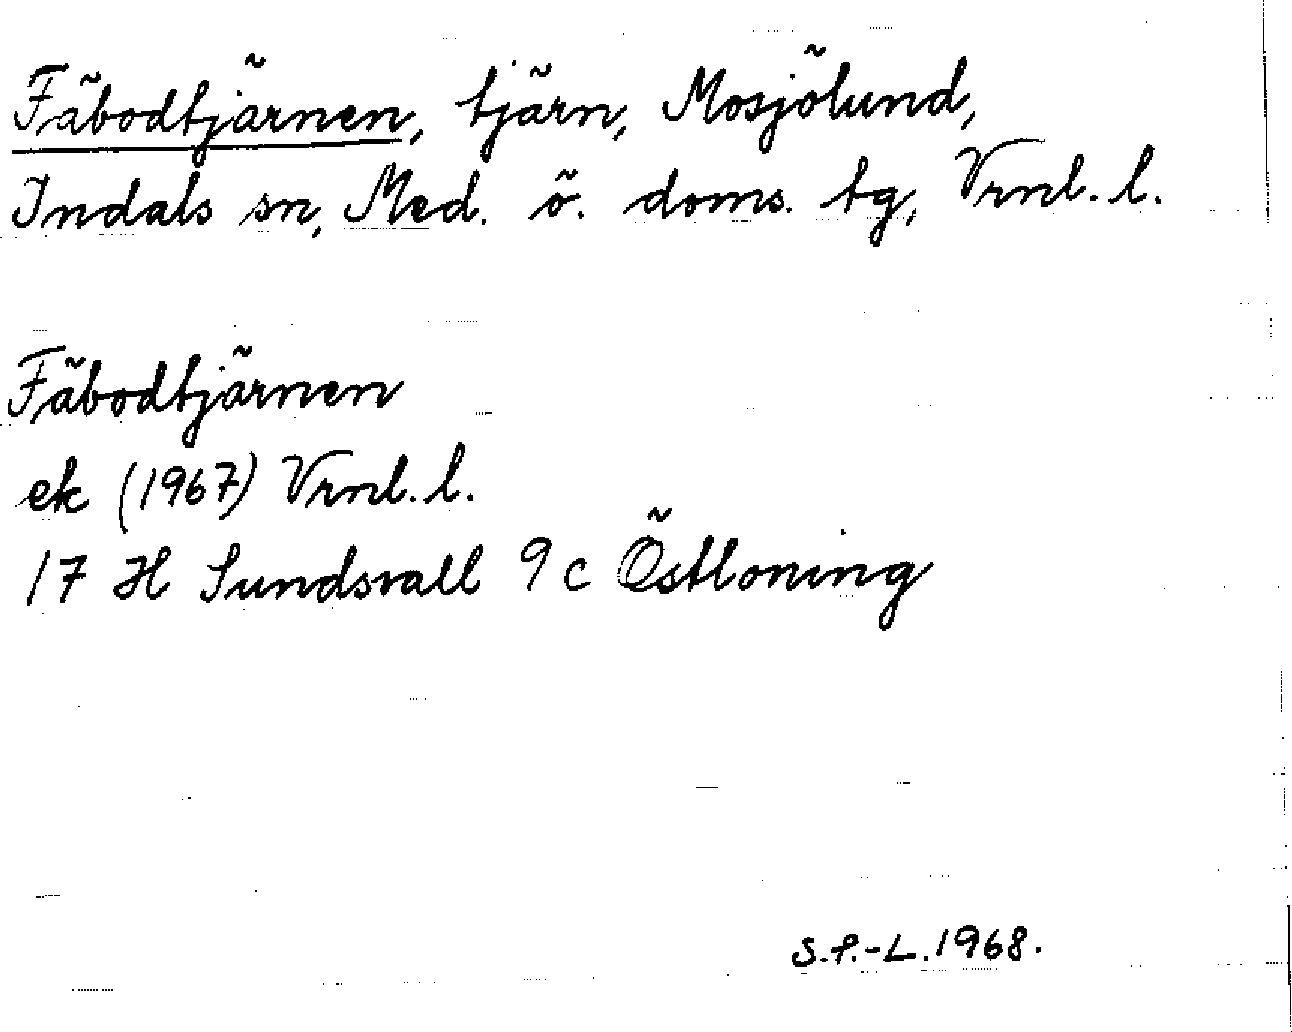 Fäbodtjärnen, tjärn, Mosjölund,
Indals sn, Med. ö. doms. tg, Vrnl. l.
Fäbodtjärnen
ek (1967) Vrnl. l.
17 H Sundsvall 9 c Östloning
S.P.-L. 1968.